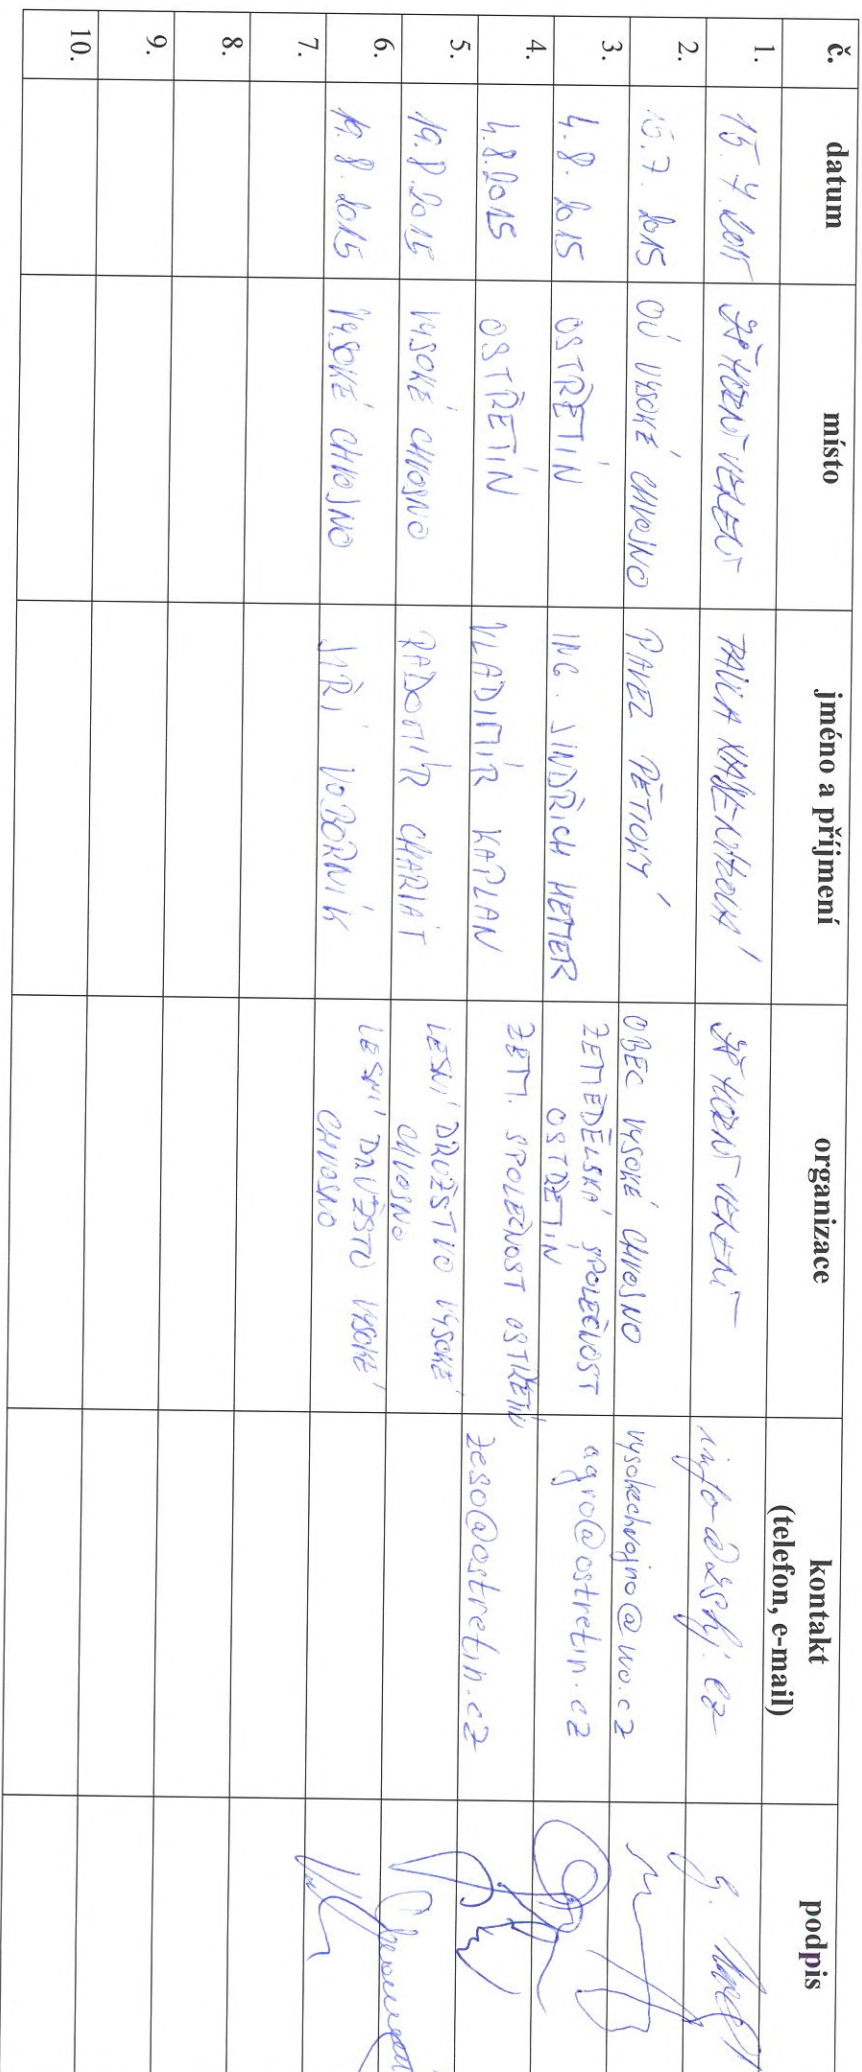 č. datum místo jméno a příjmení organizace kontakt podpis
(telefon, e-mail)
1. 15. 7. 2015 HORNÍ info@
2. 15. 7. 2015 OÚ VYSOKÉ CHVOJNO PAVEL PĚTIOKÝ OBEC VYSOKÉ CHVOJNO vysokechvojno@wo.cz
3. 4. 8. 2015 OSTŘETÍN ING. JINDŘICH ZEMĚDĚLSKÁ SPOLEČNOST agro@ostretin.cz
OSTŘETÍN
4. 4. 8. 2015 OSTŘETÍN VLADIMÍR KAPLAN ZEM. SPOLEČNOST OSTŘETÍN zeso@ostretin.cz
5. 19. 8. 2015 VYSOKÉ CHVOJNO RADOMÍR LESNÍ DRUŽSTVO VYSOKÉ
CHVOJNO
6. 19. 8. 2015 VYSOKÉ CHVOJNO JIŘÍ VOBORNÍK LESNÍ DRUŽSTVO VYSOKÉ
CHVOJNO
7.
8.
9.
10.